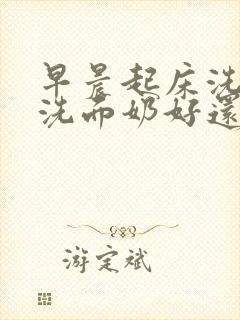 早晨起床洗
洗面奶好還
游定斌